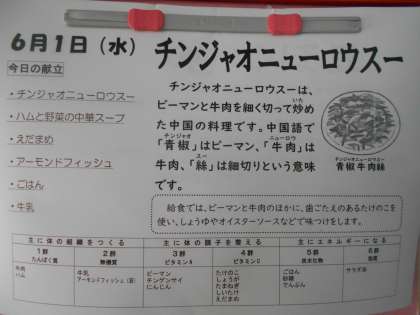 6月1日(水)
チンジャオニューロウスー
今日の献立
・チンジャオニューロウスー
・ハムと野菜の中華スープ
・えだまめ
・アーモンドフィッシュ
・ごはん
・牛乳
チンジャオニューロウスーは、
ピーマンと牛肉を細く切って炒め
た中国の料理です。中国語で
「青椒」はピーマン、「牛肉」は
牛肉、「絲」は細切りという意味
です。
チンジャオニューロウスー
青椒牛肉絲
給食では、ピーマンと牛肉のほかに、歯ごたえのあるたけのこを
使い、しょうゆやオイスターソースなどで味つけをします。
主に体の組織をつくる 主に体の調子を整える 主にエネルギーになる
1群 2群 3群 4群 5群 6群
たんぱく質 無機質 ビタミンA ビタミンC 炭水化物 脂質
牛肉 牛乳 ピーマン たけのこ ごはん サラダ油
ハム アーモンドフィッシュ チンゲンサイ しょうが 砂糖
にんじん たまねぎ でんぷん
しいたけ
えだまめ